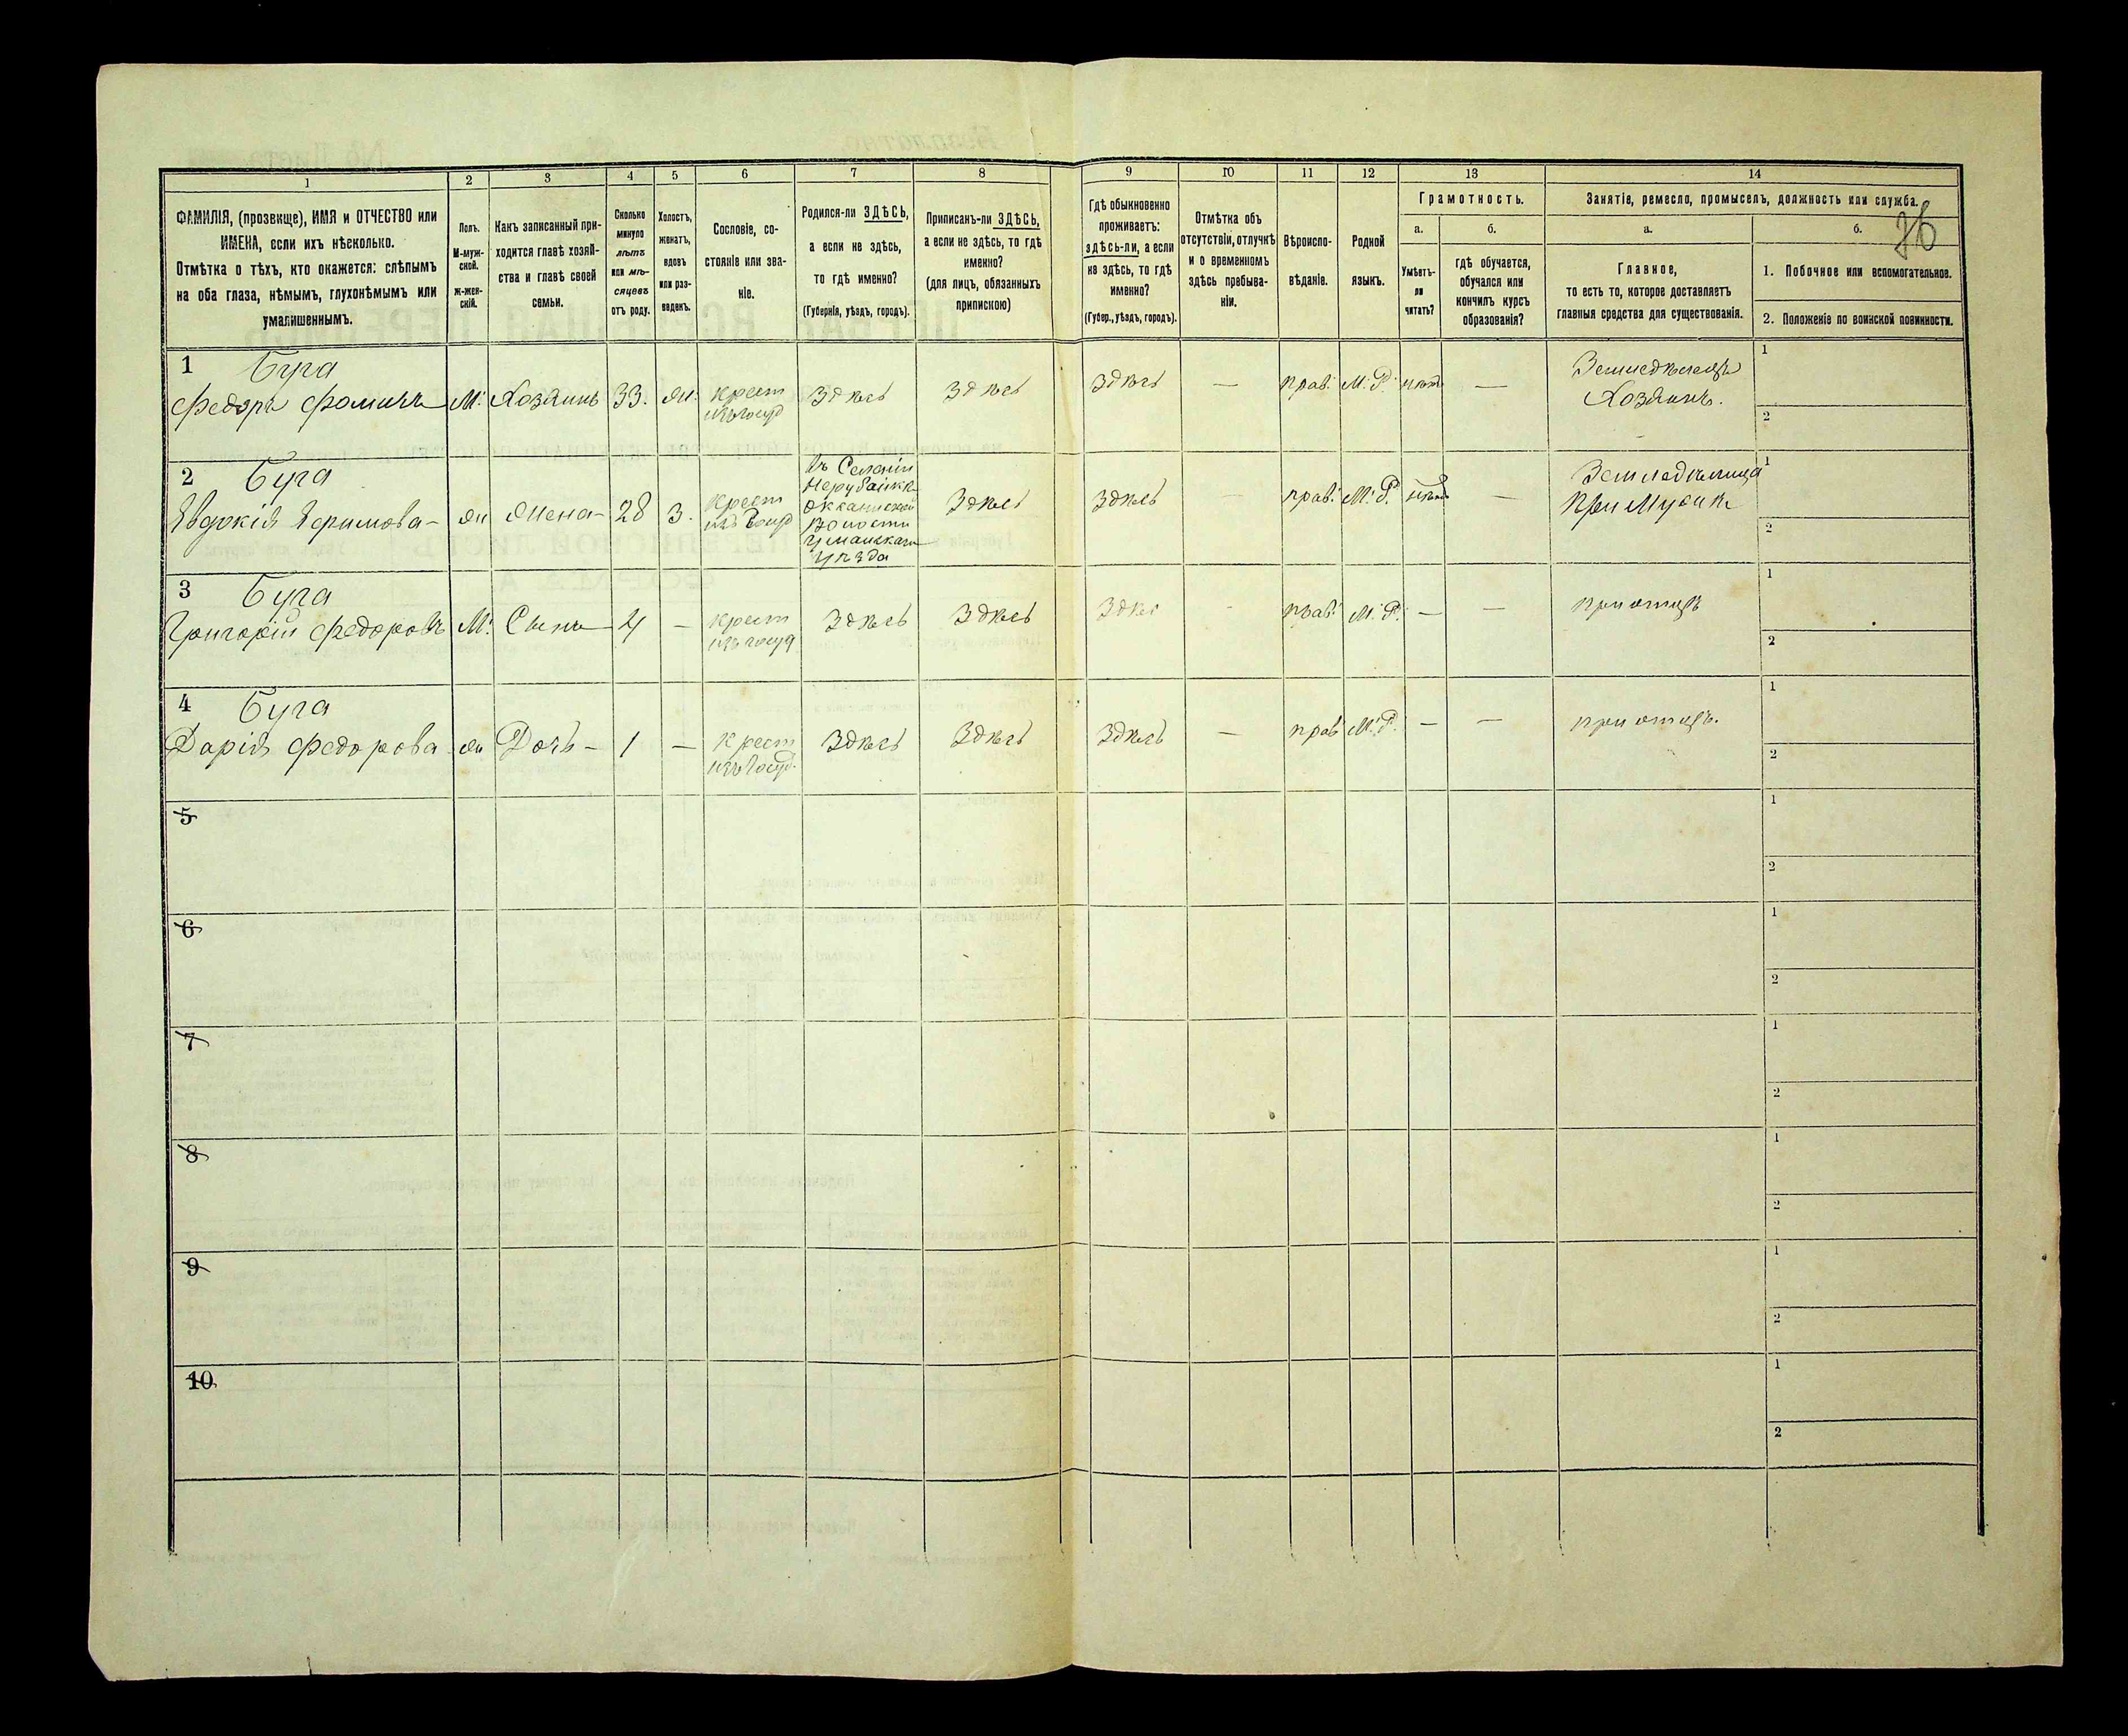 1 2 3 4 5 6 7 8 9 10 11 12 13 14
ФАМИЛІЯ, (прозвище), ИМЯ и ОТЧЕСТВО или
ИМЕНА, если ихъ нѣсколько.
Отмѣтка о тѣхъ, кто окажется: слѣпымъ
на оба глаза, нѣмымъ, глухонѣмымъ или
умалишеннымъ.
Полъ.
М-муж-
ской.
ж-жен-
скій.
Какъ записанный при-
ходится главѣ хозяй-
ства и главѣ своей
семьи.
Сколько
минуло
лѣтъ
или мѣ-
сяцевъ
отъ роду.
Холостъ,
женатъ,
вдовъ
или раз-
веденъ.
Сословіе, со-
стояніе или зва-
ніе.
Родился-ли ЗДѢСЬ,
а если не здѣсь,
то гдѣ именно?
(Губернія, уѣздъ, городъ).
Приписанъ-ли ЗДѢСЬ,
а если не здѣсь, то гдѣ
именно?
(для лицъ, обязанныхъ
припискою)
Гдѣ обыкновенно
проживаетъ:
здѣсь-ли, а если
не здѣсь, то гдѣ
именно?
(Губер., уѣздъ, городъ).
Отмѣтка объ
отсутствіи, отлучкѣ
и о временномъ
здѣсь пребыва-
ніи.
Вѣроиспо-
вѣданіе.
Родной
языкъ.
Грамотность.
а.
Умѣетъ-
ли
читать?
б.
Гдѣ обучается,
обучался или
кончилъ курсъ
образованія?
Занятіе, ремесло, промыселъ, должность или служба.
76
а.
Главное,
то есть то, которое доставляетъ
главныя средства для существованія.
б.
1. Побочное или вспомогательное.
2. Положеніе по воинской повинности.
1 Буга
Федоръ Фоминъ М. Хозяинъ 33. Ж. крест Здѣсь Здѣсь Здѣсь — прав. М.Р. нѣтъ — Земледѣлецъ
изъ госуд Хозяинъ.
1
2
2 Буга
Евдокія Ефимова - ж Жена - 28 З. Крест
изъ Госуд
въ Селеніи
Нерубайкѣ
волости
Уманскаго
уѣзда
Здѣсь Здѣсь - прав. М.Р. нѣтъ — Земледѣлица
при Мужѣ
1
2
3 Буга
Григорій Федоровъ М. Сынъ 4 — крест Здѣсь Здѣсь Здѣсь - прав. М.Р. — — при отцѣ
изъ госуд
1
2
4 Буга
Дарія Федорова ж Дочь - 1 — Крест Здѣсь Здѣсь Здѣсь — прав М.Р. — — при отцѣ.
изъ Госуд.
1
2
5
1
2
6
1
2
7
1
2
8
1
2
9
1
2
10
1
2